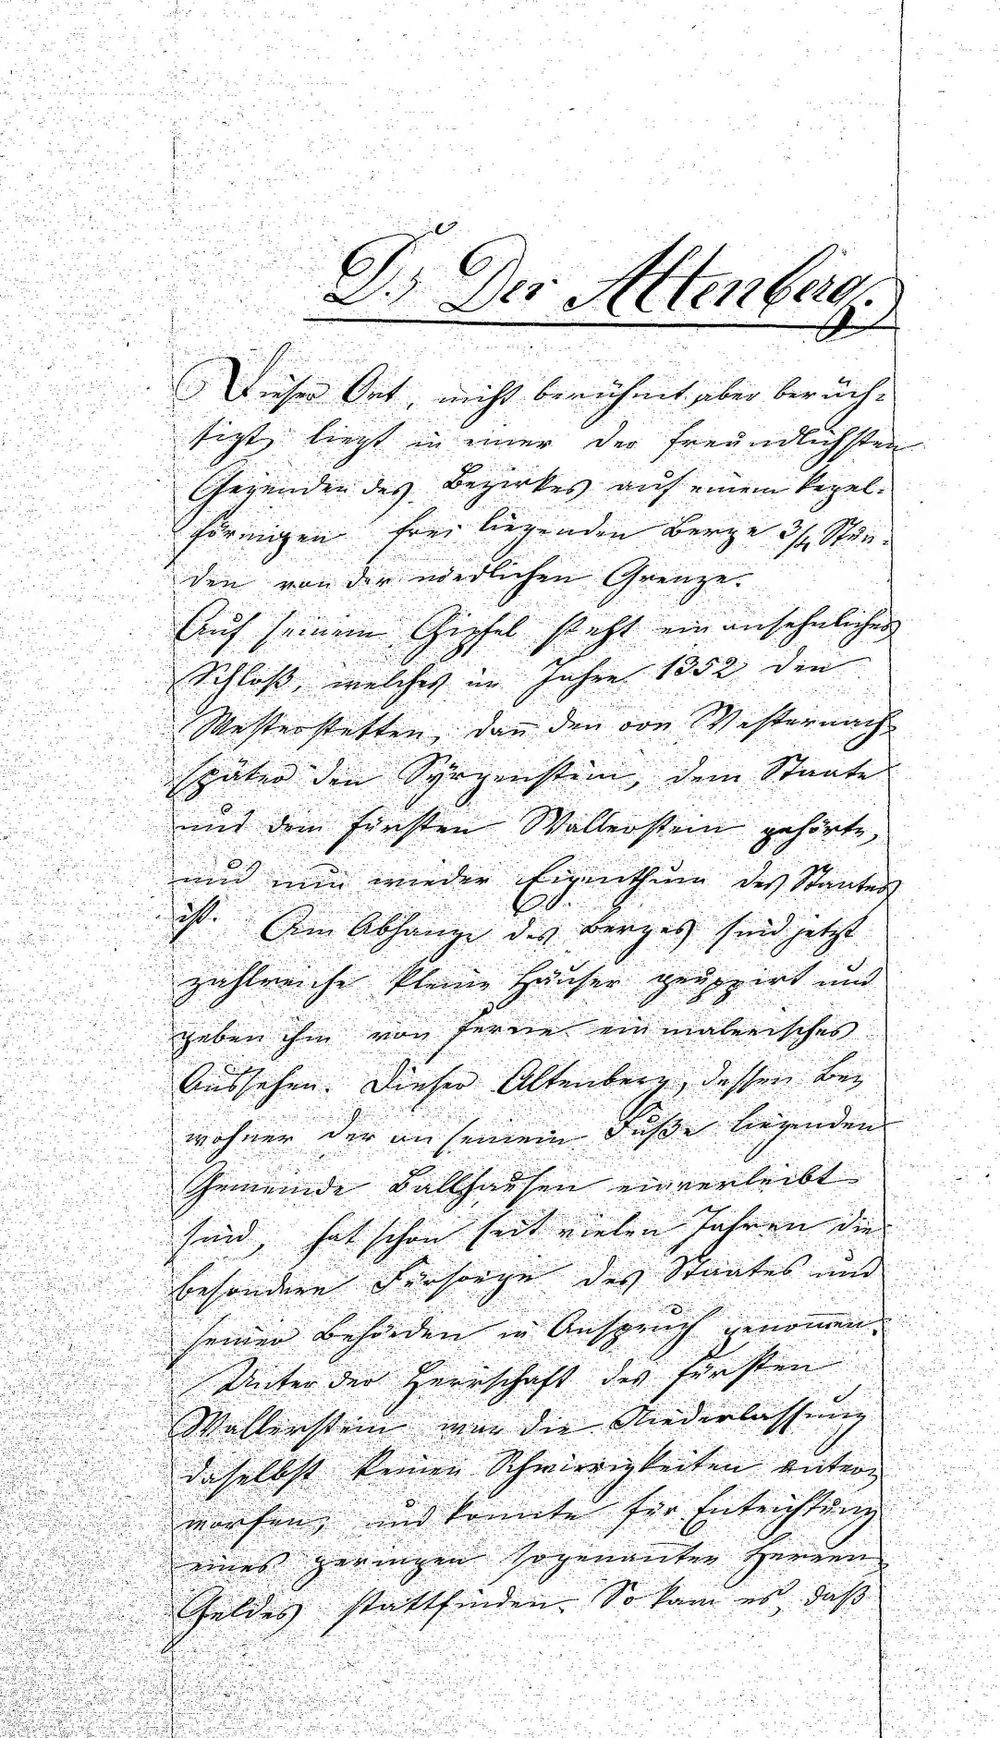 D., Der Altenberg.
Dieser Ort, nicht berühmt, aber berüch-
tigt, liegt in einer der freundlichsten
Gegenden des Bezirkes auf einem kegel-
förmigen frei liegenden Berge 3/4 Stun-
den von der nördlichen Grenze.
Auf seinem Gipfel steht ein ansehnliches
Schloß, welches im Jahre 1352 den
Westerstetten, dan̄ den von Westernach
später den Syrgenstein, dem Staate
und dem Fürsten Wallerstein gehörte,
und nun wieder Eigenthum des Staates
ist. Am Abhange des Berges sind jetzt
zahlreiche kleine Häuser gruppirt und
geben ihm von ferne ein malerisches
Aussehen. Dieser Altenberg, dessen Be-
wohner der an seinem Fuße liegenden
Gemeinde Ballhausen einverleibt
sind, hat schon seit vielen Jahren die
besondere Fürsorge des Staates und
seiner Behörden in Anspruch genom̄en.
Unter der Herrschaft des Fürsten
Wallerstein war die Niederlassung
daselbst keinen Schwierigkeiten unter-
worfen, und konnte für Entrichtung
eines geringen sogenan̄ten Herren
Geldes stattfinden. So kam es, daß